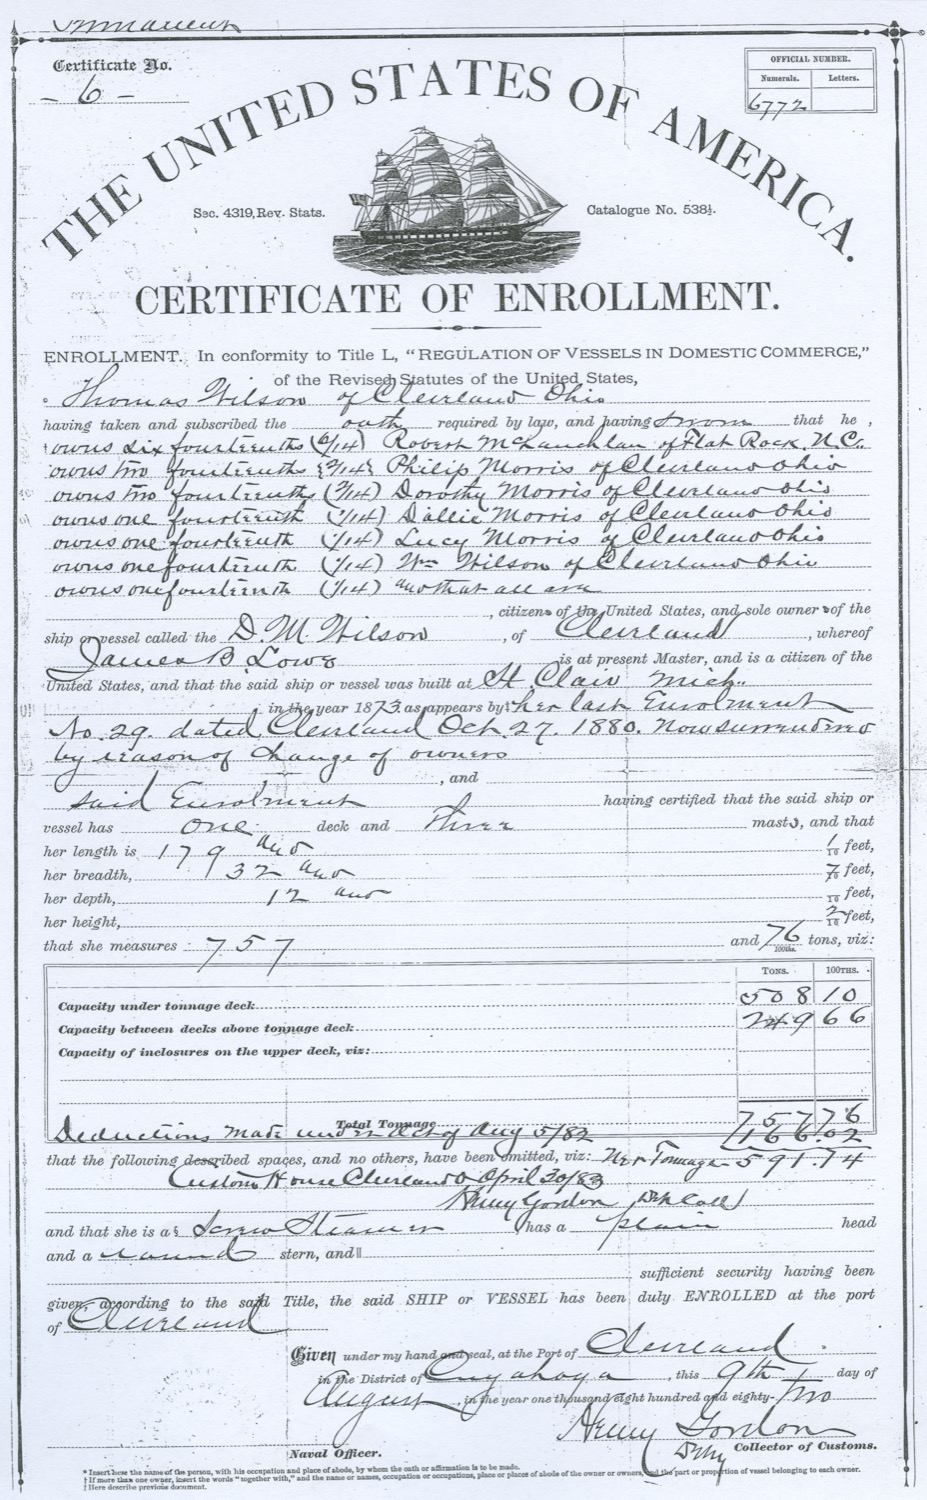 Permanent
Certificate No.
- 6 -
OFFICIAL NUMBER.
Numerals. Letters.
6772
THE UNITED STATES OF AMERICA.
Sec. 4319, Rev. Stats.
Catalogue No. 538½.
CERTIFICATE OF ENROLLMENT.
ENROLLMENT. In conformity to Title L, "REGULATION OF VESSELS IN DOMESTIC COMMERCE,"
of the Revised Statutes of the United States,
Thomas Wilson of Cleveland Ohio
having taken and subscribed the oath required by law, and having sworn that he
owns six fourteenths (6/14) Robert McLauchlan of Flat Rock, N.C.
owns two fourteenths (2/14) Philip Morris of Cleveland Ohio
owns two fourteenths (2/14) Dorothy Morris of Cleveland Ohio
owns one fourteenth (1/14) Dallie Morris of Cleveland Ohio
owns one fourteenth (1/14) Lucy Morris of Cleveland Ohio
owns one fourteenth (1/14) Wm Wilson of Cleveland Ohio
owns one fourteenth (1/14) and that all are
citizens of the United States, and sole owners of the
ship or vessel called the D. M. Wilson, of Cleveland, whereof
James B. Lowe is at present Master, and is a citizen of the
United States, and that the said ship or vessel was built at St Clair Mich.
in the year 1873. as appears by‡ her last Enrolment
No. 29. dated Cleveland Oct 27. 1880. Now surrendered
by reason of change of owners
, and
said Enrolment having certified that the said ship or
vessel has one deck and Three masts, and that
her length is 179 and 1/10 feet,
her breadth, 32 and 7/10 feet,
her depth, 12 and /10 feet,
her height, 2/10 feet,
that she measures 757 and 76/100ths. tons, viz:
TONS. 100THS.
Capacity under tonnage deck 508 10
Capacity between decks above tonnage deck 249 66
Capacity of inclosures on the upper deck, viz:
Total Tonnage 757 76
Deductions made under Act of Aug 5/82 166.02
that the following described spaces, and no others, have been omitted, viz: Net Tonnage 591.74
Custom House Cleveland O April 30/83
Henry Gordon
and that she is a Screw Steamer has a plain head
and a round stern, and
sufficient security having been
given, according to the said Title, the said SHIP or VESSEL has been duly ENROLLED at the port
of Cleveland
Given under my hand and seal, at the Port of Cleveland
in the District of Cuyahoga, this 9th day of
August, in the year one thousand eight hundred and eighty-two
Henry Gordon
Naval Officer. Depy Collector of Customs.
* Insert here the name of the person, with his occupation and place of abode, by whom the oath or affirmation is to be made.
† If more than one owner, insert the words "together with," and the name or names, occupation or occupations, place or places of abode of the owner or owners, and the part or proportion of vessel belonging to each owner.
‡ Here describe previous document.